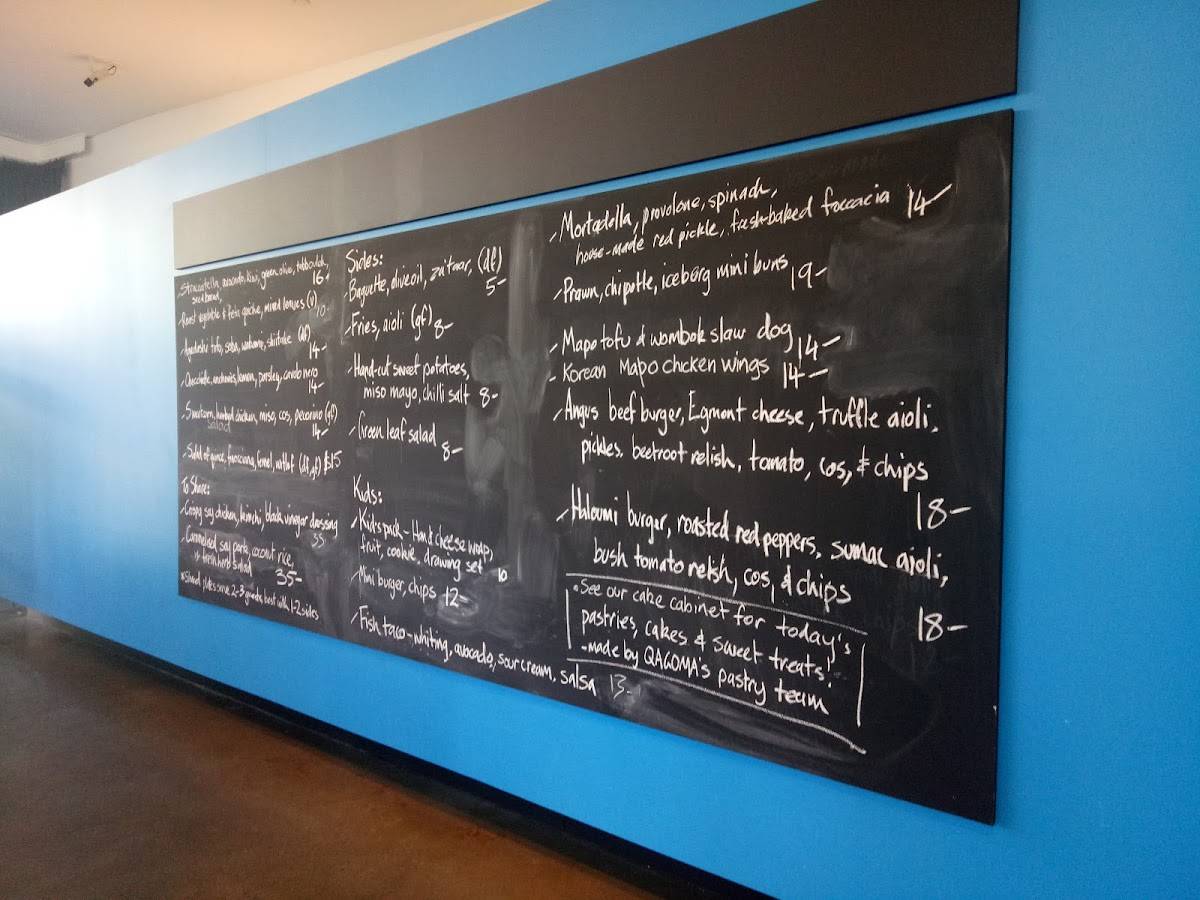 Stracciatella, avocado, kiwi, green olive, tabbouleh
seed bread, 16-
Roast vegetable & feta quiche, mixed leaves (v) 10-
Agedashi tofu, soba, wakame, shiitake (df)
14-
lemon, parsley,
14-
Sweetcorn, chicken, miso, cos, pecorino (gf)
salad 14-
Salad of quince, fennel, (df, gf) $15
To Share:
Crispy soy chicken, kimchi, black vinegar dressing
35
Caramelised soy pork, coconut rice,
& fresh herb salad 35-
*Shared plates serve 2-3 guests, best with 1-2 sides
Sides:
Baguette, olive oil, za'taar, (df)
5-
Fries, aioli (gf) 8-
Hand-cut sweet potatoes,
miso mayo, chilli salt 8-
Green leaf salad
8-
Kids:
Kid's pack - Ham & cheese wrap,
fruit, cookie, drawing set 10
Mini burger, chips 12-
Fish taco - whiting, avocado, sour cream, salsa 13-
Mortadella, provolone, spinach,
house-made red pickle, fresh-baked foccacia 14-
Prawn, chipotle, iceberg mini buns 19-
Mapo tofu & wombok slaw dog 14-
- Korean Mapo chicken wings 14-
Angus beef burger, Egmont cheese, truffle aioli,
pickles, beetroot relish, tomato, cos, & chips
18-
Haloumi burger, roasted red peppers, sumac aioli,
bush tomato relish, cos, & chips
18-
• See our cake cabinet for today's
pastries, cakes & sweet treats!
- made by QAGOMA's pastry team